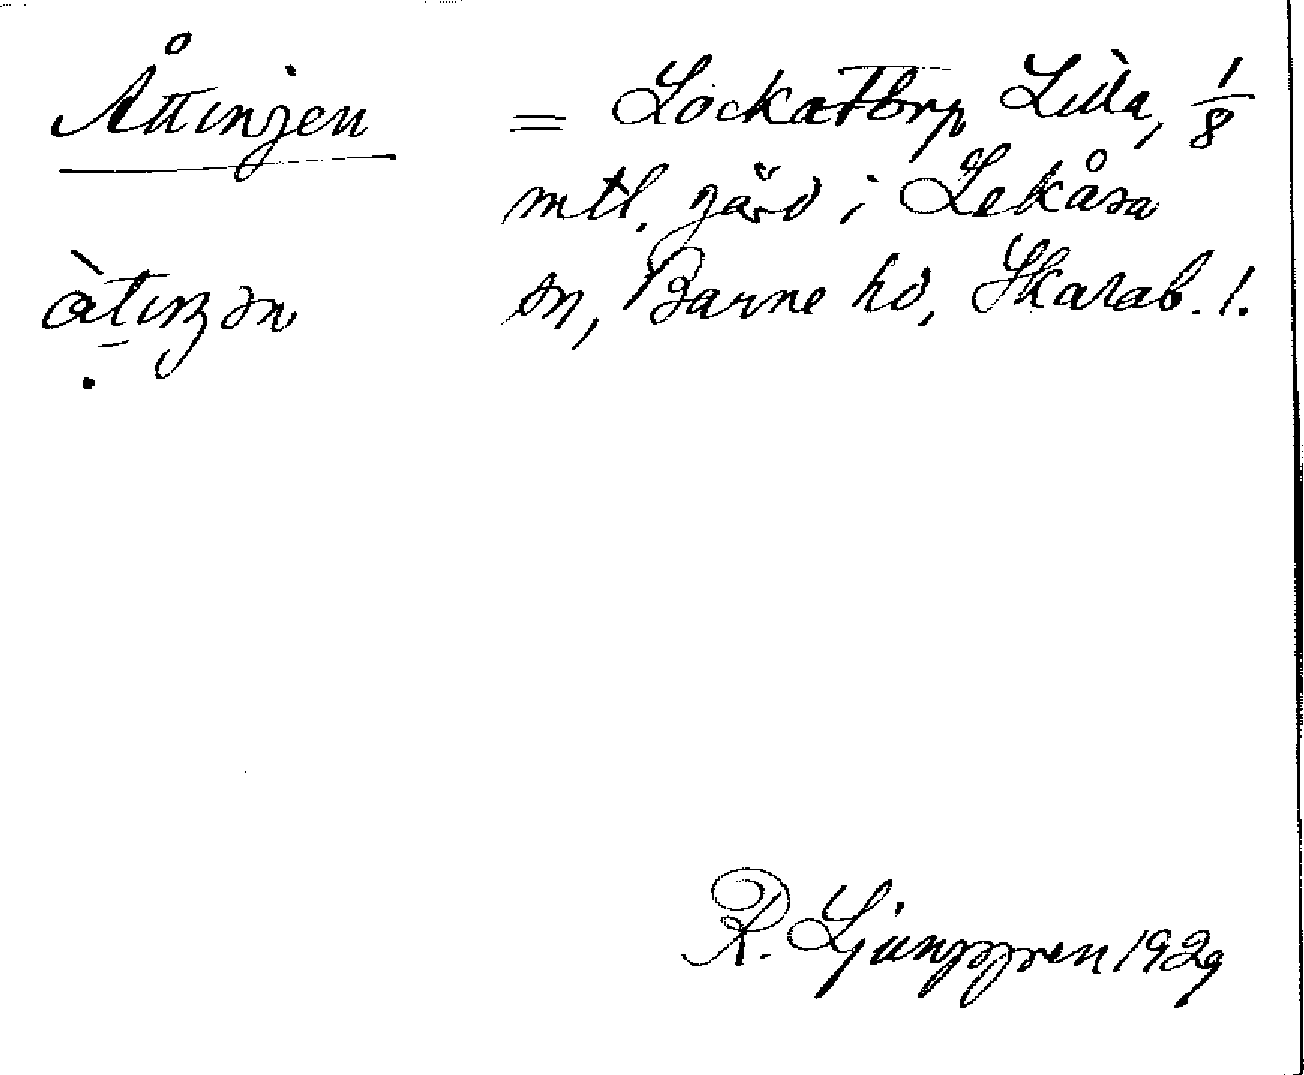 Åttinjen = Lockattorp Lilla, 1/8
mtl. gård i Lekåsa
sn, Barne hd, Skarab. l.
R. Ljunggren 1929